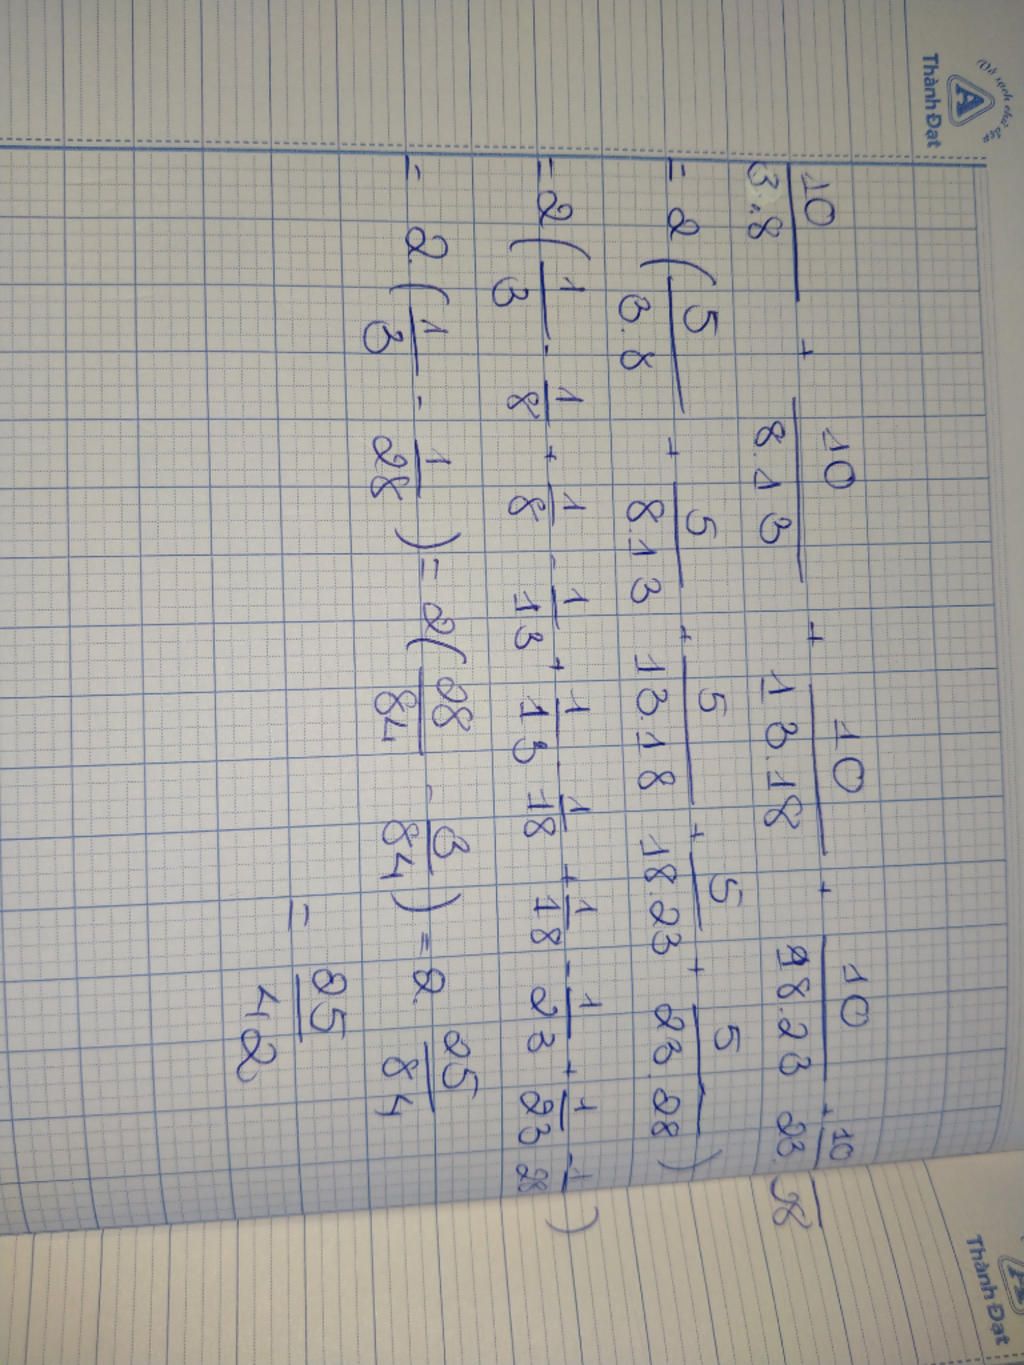 Thành Đạt
10/3.8 + 10/8.13 + 10/13.18 + 10/18.23 + 10/23.28
= 2(5/3.8 + 5/8.13 + 5/13.18 + 5/18.23 + 5/23.28)
= 2(1/3 - 1/8 + 1/8 - 1/13 + 1/13 - 1/18 + 1/18 - 1/23 + 1/23 - 1/28)
= 2.(1/3 - 1/28) = 2(28/84 - 3/84) = 2. 25/84
= 25/42
Thành Đạt